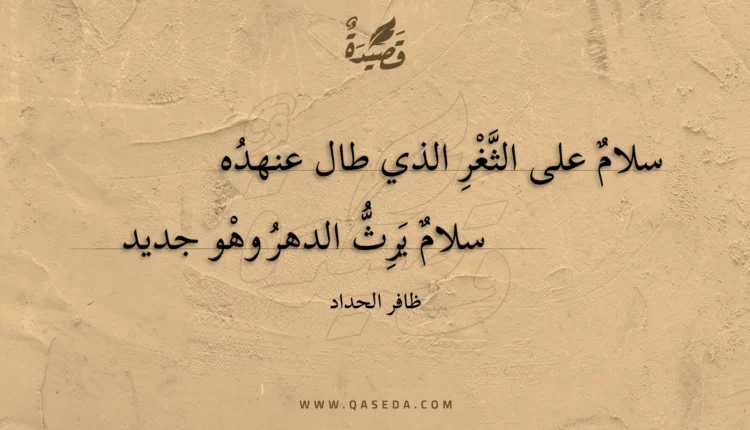 قَصِيدَةٌ
سلامٌ على الثَّغْرِ الذي طال عنهدُه
سلامٌ يَرِثُّ الدهرُ وهْو جديد
ظافر الحداد
WWW.QASEDA.COM